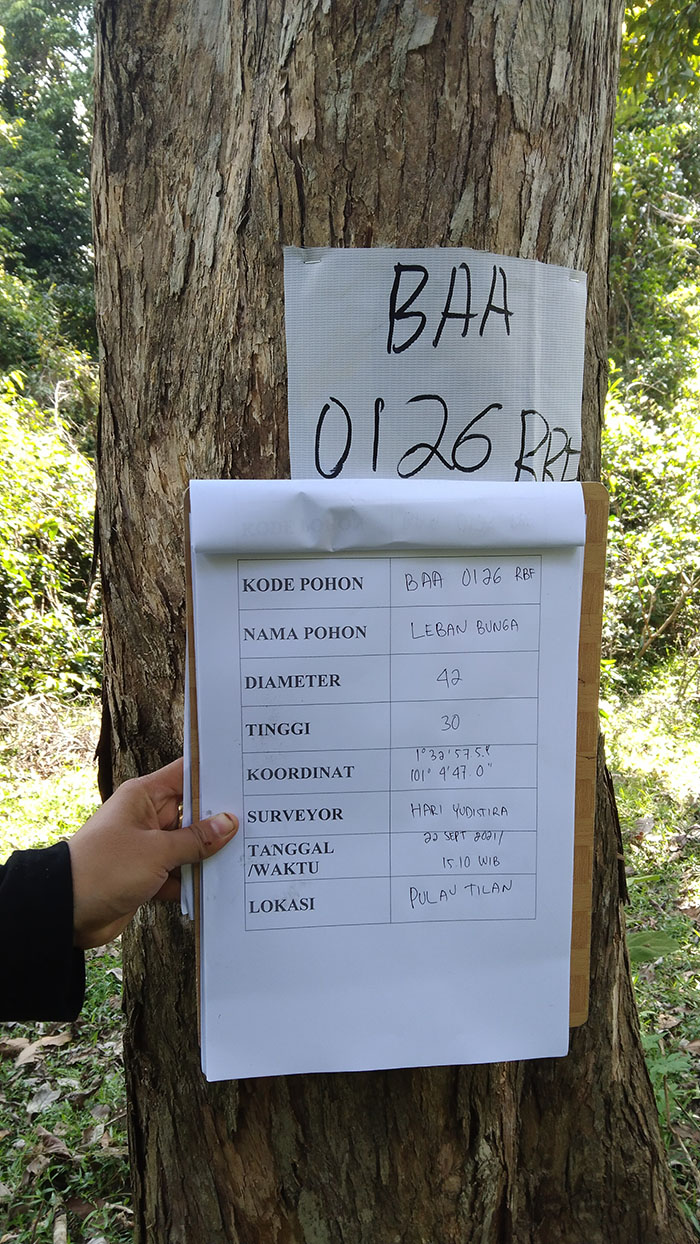 BAA
0126 RBF
KODE POHON BAA 0126 RBF
NAMA POHON LEBAN BUNGA
DIAMETER 42
TINGGI 30
KOORDINAT 1° 32' 57 5."
101° 4' 47. 0"
SURVEYOR HARI YUDISTIRA
TANGGAL 22 SEPT 2021/
/WAKTU 15.10 WIB
LOKASI PULAU TILAN